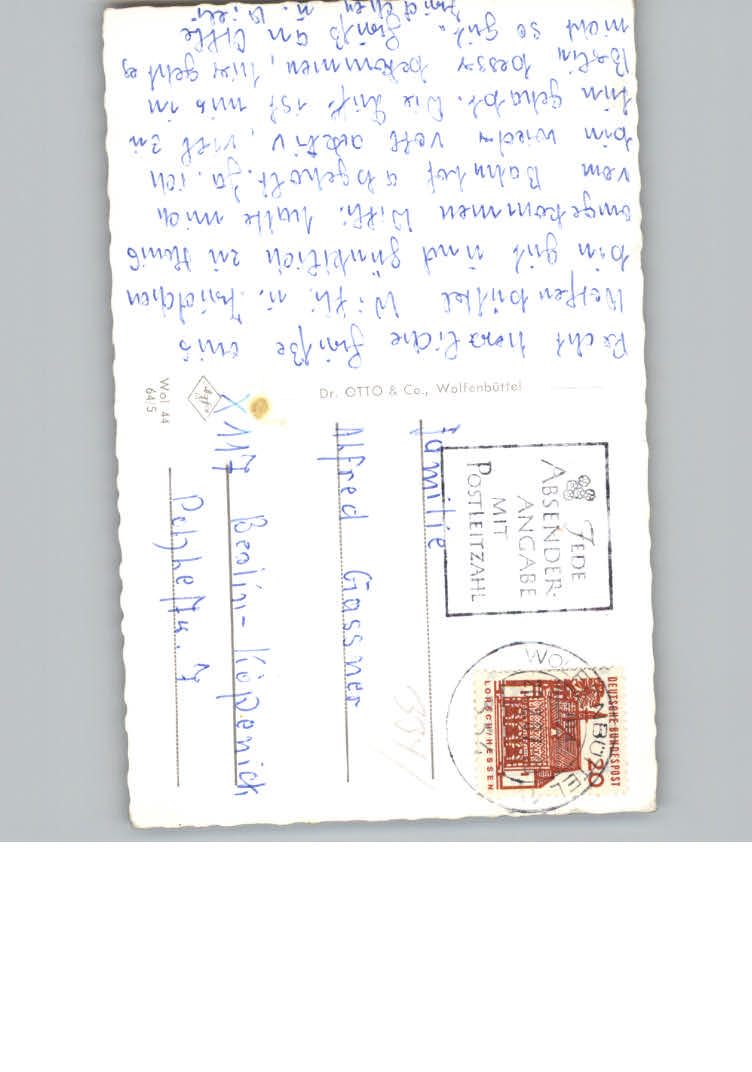 Recht herzliche Grüße aus
Wolfenbüttel Willi u. Fridchen
bin gut und pünktlich zu Haus
angekommen Willi hatte mich
vom Bahnhof abgeholt. Ja, ich
bin wieder voll aktiv, viel zu
tun gehabt. Die Luft ist mir in
Berlin besser bekommen, hier geht es
nicht so gut. Gruß an Alle
Fridchen u. Willi
Dr. OTTO & Co., Wolfenbüttel
Wol 44
64/5
JEDE
ABSENDER-
ANGABE
MIT
POSTLEITZAHL
DEUTSCHE BUNDESPOST
20
LORSCH/HESSEN
Familie
Alfred Gassner
X 117 Berlin-Köpenick